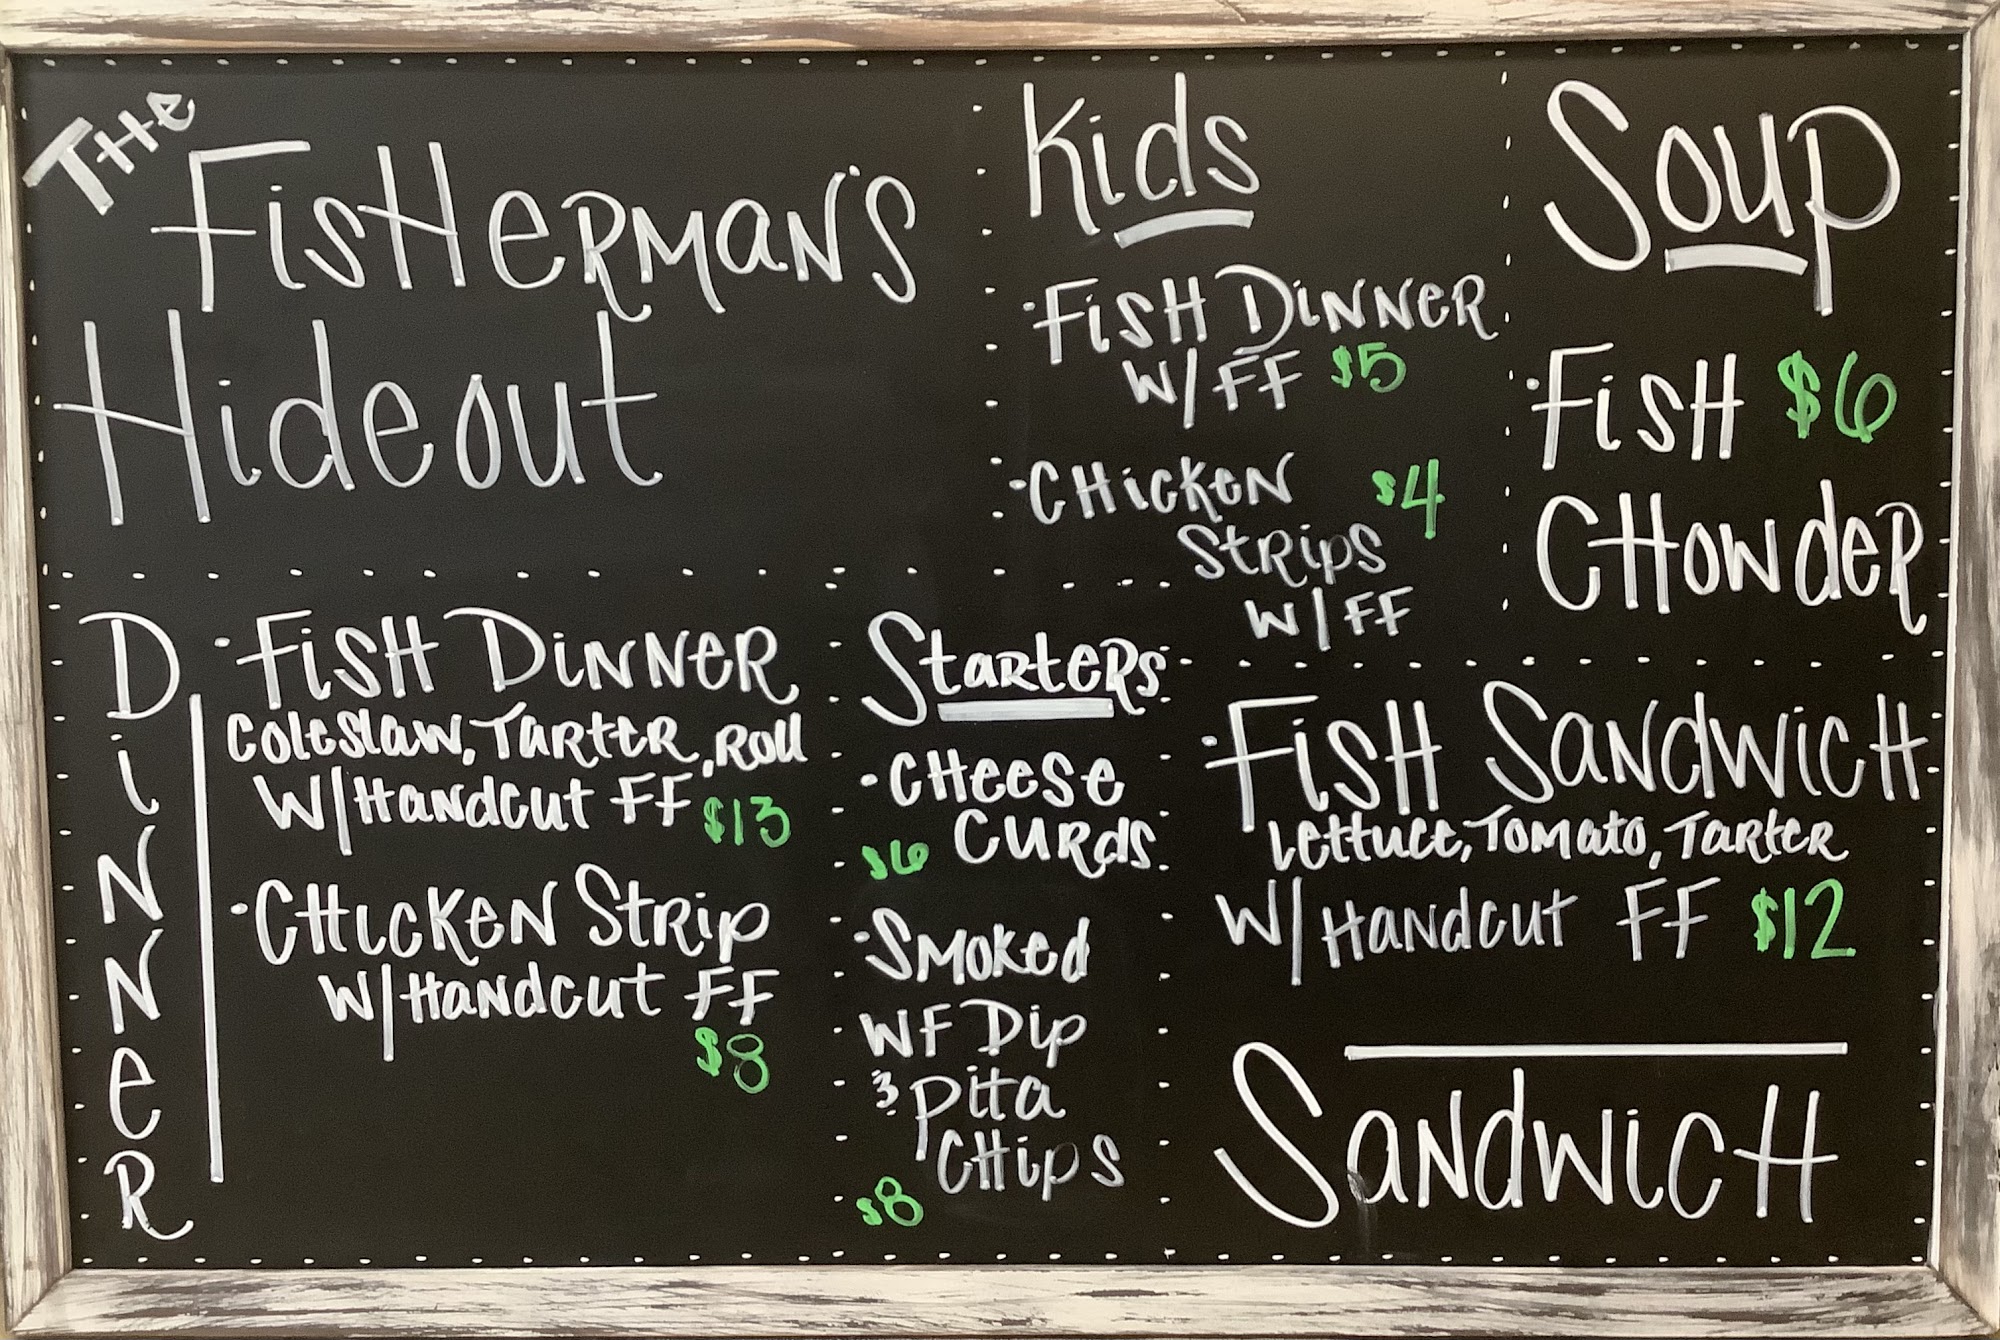 THe
FisHeRMaN's
Hideout
Kids
·FisH DiNNeR
W/ FF $5
·CHicKeN $4
StRips
W/ FF
Soup
·FisH $6
CHowdeR
DiNNeR
·FisH DiNNeR
Coleslaw, TaRteR, Roll
W/HaNdcut FF $13
·CHicKeN StRip
W/HaNdcut FF
$8
StaRteRs
·CHeese
$6 CuRds
·SMoKed
WF Dip
& Pita
CHips
$8
·FisH SaNdwicH
Lettuce, ToMato, TaRteR
W/HaNdcut FF $12
SaNdwicH